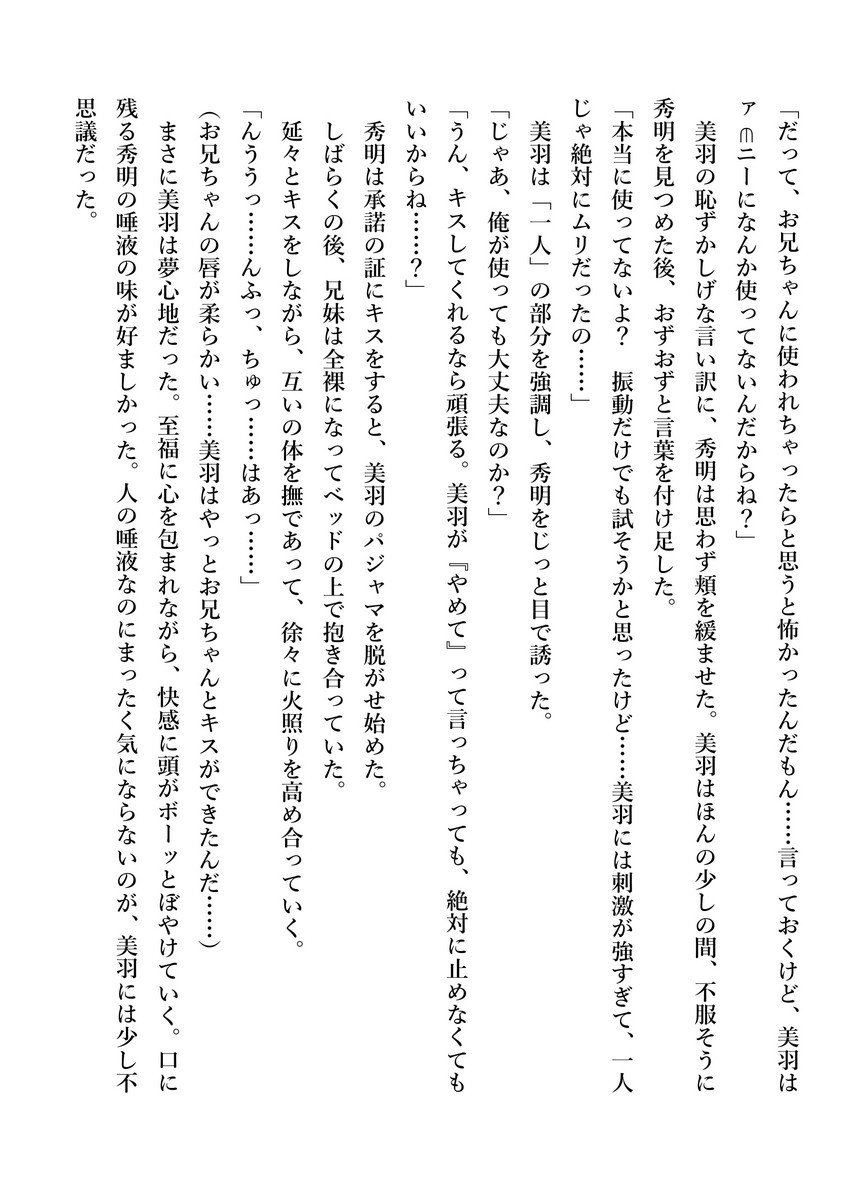 「だって、お兄ちゃんに使われちゃったらと思うと怖かったんだもん……言っておくけど、美羽は
ァ∩ニーになんか使ってないんだからね？」
美羽の恥ずかしげな言い訳に、秀明は思わず頬を緩ませた。美羽はほんの少しの間、不服そうに
秀明を見つめた後、おずおずと言葉を付け足した。
「本当に使ってないよ？　振動だけでも試そうかと思ったけど……美羽には刺激が強すぎて、一人
じゃ絶対にムリだったの……」
美羽は「一人」の部分を強調し、秀明をじっと目で誘った。
「じゃあ、俺が使っても大丈夫なのか？」
「うん、キスしてくれるなら頑張る。美羽が『やめて』って言っちゃっても、絶対に止めなくても
いいからね……？」
秀明は承諾の証にキスをすると、美羽のパジャマを脱がせ始めた。
しばらくの後、兄妹は全裸になってベッドの上で抱き合っていた。
延々とキスをしながら、互いの体を撫であって、徐々に火照りを高め合っていく。
「んううっ……んふっ、ちゅっ……はあっ……」
(お兄ちゃんの唇が柔らかい……美羽はやっとお兄ちゃんとキスができたんだ……)
まさに美羽は夢心地だった。至福に心を包まれながら、快感に頭がボーッとぼやけていく。口に
残る秀明の唾液の味が好ましかった。人の唾液なのにまったく気にならないのが、美羽には少し不
思議だった。